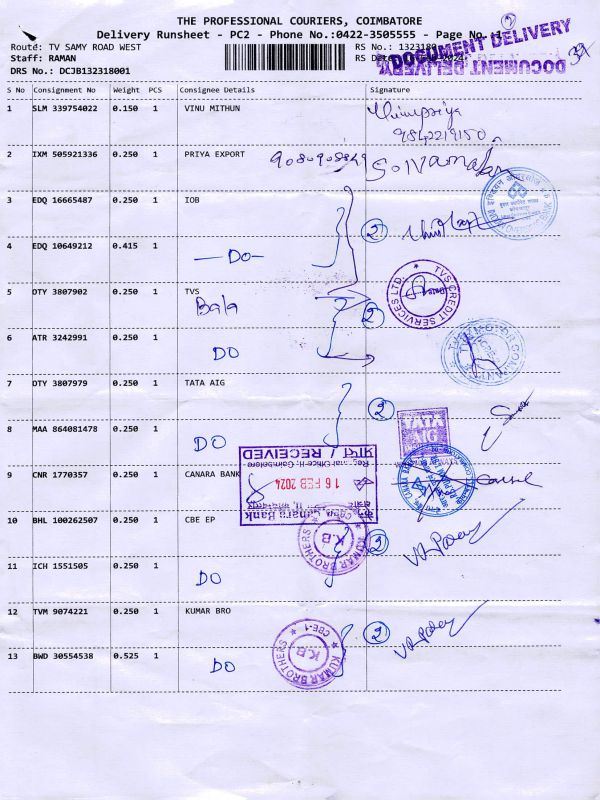 THE PROFESSIONAL COURIERS, COIMBATORE
Delivery Runsheet - PC2 - Phone No.:0422-3505555 - Page No.:1
Route: TV SAMY ROAD WEST
RS No.: 1323180
Staff: RAMAN
RS Date:
DRS No.: DCJB132318001
DOCUMENT DELIVERY
DOCUMENT DELIVERY
S No Consignment No Weight PCS Consignee Details Signature
1 SLM 339754022 0.150 1 VINU MITHUN
9842219150
2 IXM 505921336 0.250 1 PRIYA EXPORT 9080908849
3 EDQ 16665487 0.250 1 IOB
2
4 EDQ 10649212 0.415 1 - DO -
5 OTY 3807902 0.250 1 TVS
Bala
2
TVS CREDIT SERVICES LTD.
6 ATR 3242991 0.250 1 DO
7 OTY 3807979 0.250 1 TATA AIG
2
TATA AIG
8 MAA 864081478 0.250 1 DO
9 CNR 1770357 0.250 1 CANARA BANK
प्राप्त / RECEIVED
Regional Office II, Coimbatore
16 FEB 2024
Canara Bank
10 BHL 100262507 0.250 1 CBE EP
2
KUMAR BROTHERS
K.B
CBE-1
11 ICH 1551505 0.250 1 DO
12 TVM 9074221 0.250 1 KUMAR BRO
2
KUMAR BROTHERS
K.B
CBE-1
13 BWD 30554538 0.525 1 DO